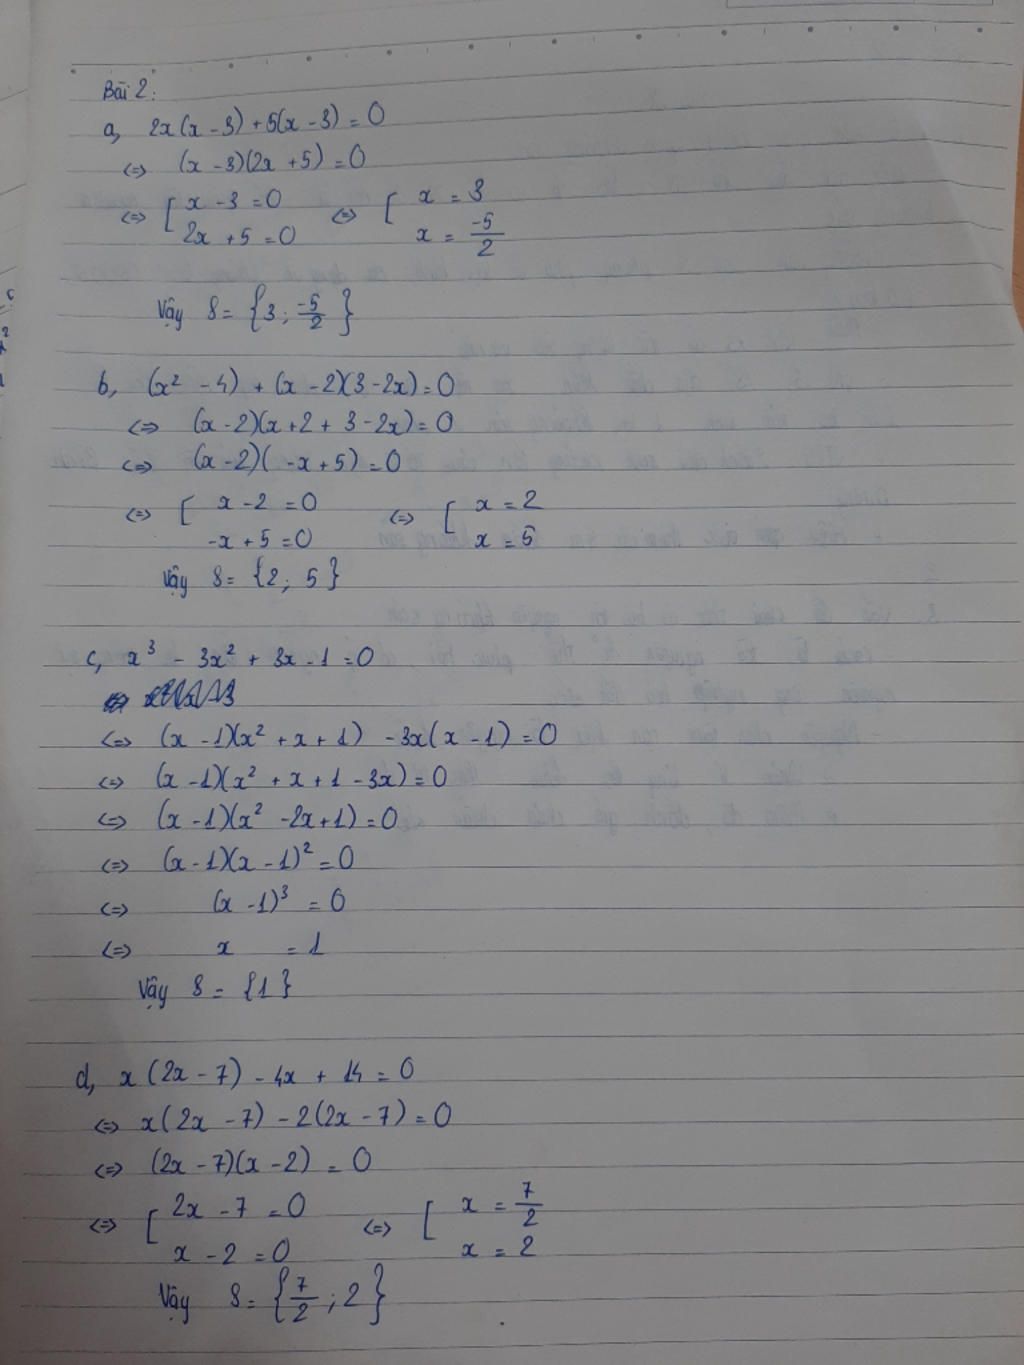 Bài 2:
a, 2x(x - 3) + 5(x - 3) = 0
<=> (x - 3)(2x + 5) = 0
<=> [ x - 3 = 0 <=> [ x = 3
2x + 5 = 0 x = -5/2
Vậy S = {3; -5/2}
b, (x² - 4) + (x - 2)(3 - 2x) = 0
<=> (x - 2)(x + 2 + 3 - 2x) = 0
<=> (x - 2)( -x + 5) = 0
<=> [ x - 2 = 0 <=> [ x = 2
-x + 5 = 0 x = 5
Vậy S = {2; 5}
c, x³ - 3x² + 3x - 1 = 0
<=> (x - 1)(x² + x + 1) - 3x(x - 1) = 0
<=> (x - 1)(x² + x + 1 - 3x) = 0
<=> (x - 1)(x² - 2x + 1) = 0
<=> (x - 1)(x - 1)² = 0
<=> (x - 1)³ = 0
<=> x = 1
Vậy S = {1}
d, x(2x - 7) - 4x + 14 = 0
<=> x(2x - 7) - 2(2x - 7) = 0
<=> (2x - 7)(x - 2) = 0
<=> [ 2x - 7 = 0 <=> [ x = 7/2
x - 2 = 0 x = 2
Vậy S = {7/2; 2}